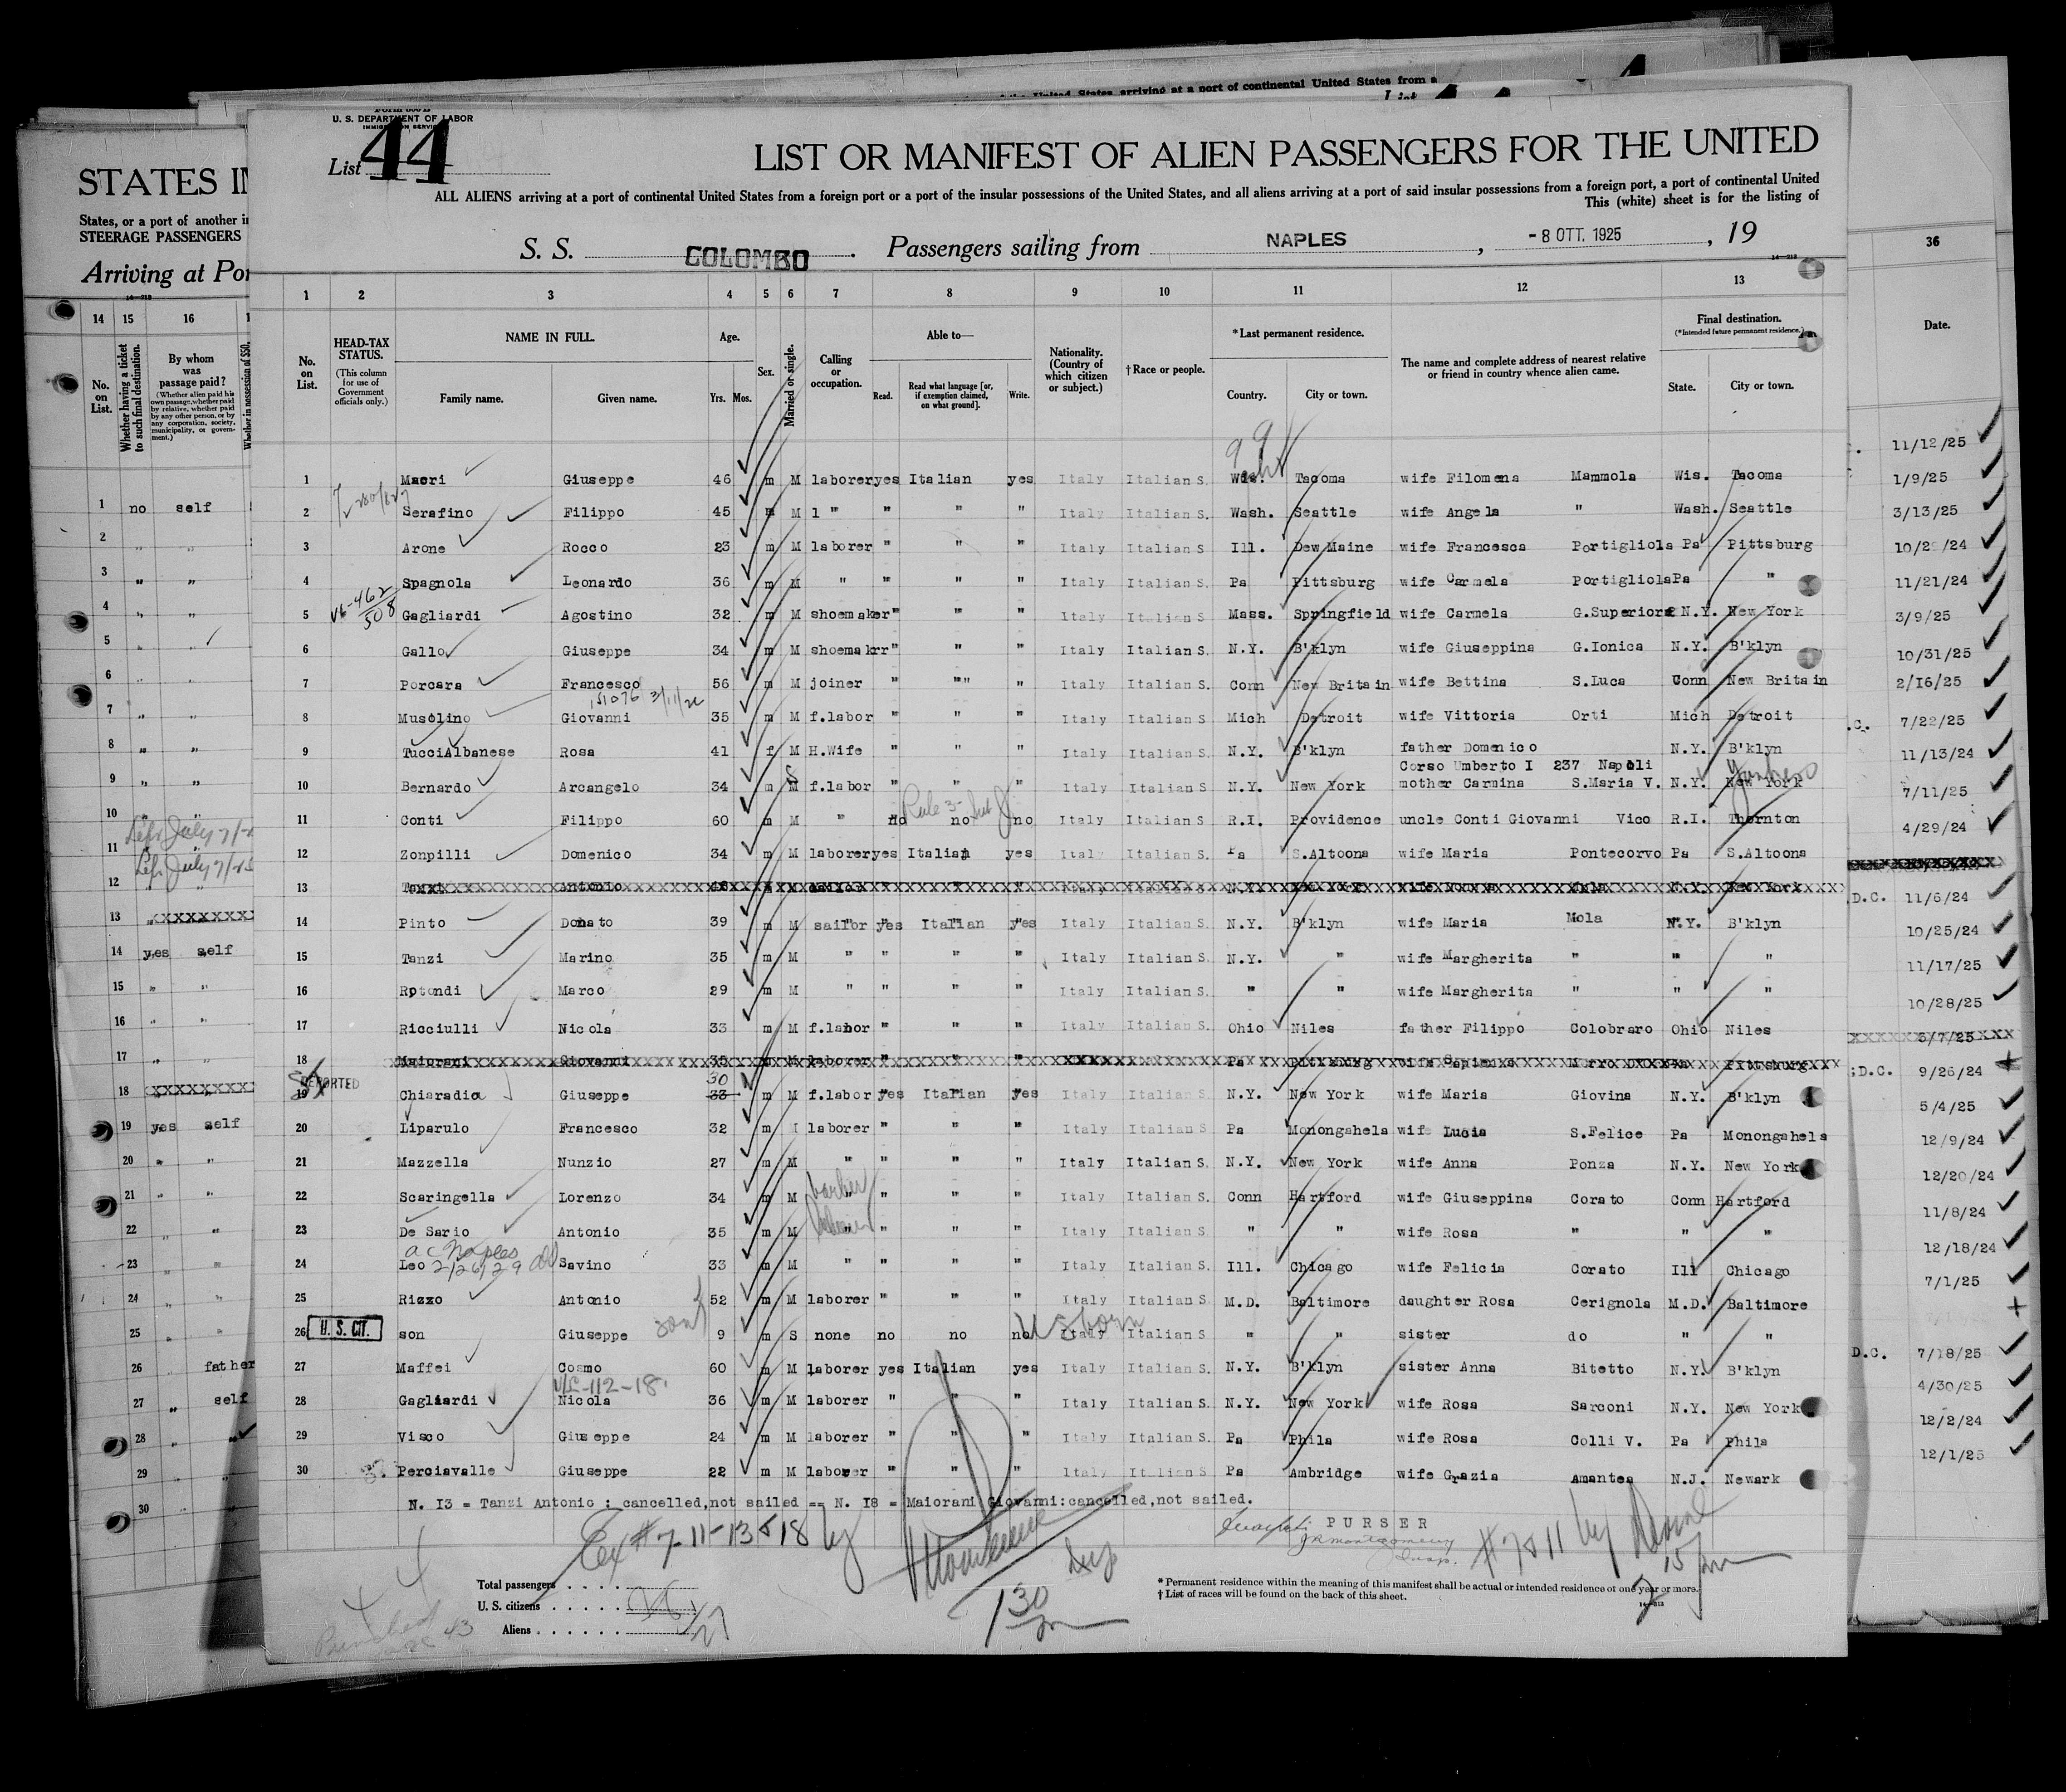 the United States arriving at a port of continental United States from a
U. S. DEPARTMENT OF LABOR
List 44
LIST OR MANIFEST OF ALIEN PASSENGERS FOR THE UNITED
ALL ALIENS arriving at a port of continental United States from a foreign port or a port of the insular possessions of the United States, and all aliens arriving at a port of said insular possessions from a foreign port, a port of continental United
This (white) sheet is for the listing of
S. S. COLOMBO. Passengers sailing from NAPLES, -8 OTT. 1925, 19
1 2 3 4 5 6 7 8 9 10 11 12 13
No. on List. HEAD-TAX STATUS. (This column for use of Government officials only.) NAME IN FULL. Family name. Given name. Age. Yrs. Mos. Sex. Married or single. Calling or occupation. Able to— Read. Read what language [or, if exemption claimed, on what ground]. Write. Nationality. (Country of which citizen or subject.) †Race or people. *Last permanent residence. Country. City or town. The name and complete address of nearest relative or friend in country whence alien came. Final destination. (*Intended future permanent residence.) State. City or town.
1 Macri Giuseppe 46 m M laborer yes Italian yes Italy Italian S. Wis. Tacoma wife Filomena Mammola Wis. Tacoma
2 Serafino Filippo 45 m M l " " " " Italy Italian S. Wash. Seattle wife Angela " Wash. Seattle
3 Arone Rocco 23 m M laborer " " " Italy Italian S Ill. Dew Maine wife Francesca Portigliola Pa Pittsburg
4 Spagnola Leonardo 36 m M " " " " Italy Italian S. Pa Pittsburg wife Carmela Portigliola Pa "
5 Gagliardi Agostino 32 m M shoemaker " " " Italy Italian S Mass. Springfield wife Carmela G.Superiore N.Y. New York
6 Gallo Giuseppe 34 m M shoemakrr " " " Italy Italian S. N.Y. B'klyn wife Giuseppina G.Ionica N.Y. B'klyn
7 Porcara Francesco 56 m M joiner " "" " Italy Italian S. Conn New Britain wife Bettina S.Luca Conn New Britain
8 Musolino Giovanni 35 m M f.labor " " " Italy Italian S Mich Detroit wife Vittoria Orti Mich Detroit
9 TucciAlbanese Rosa 41 f M H.Wife " " " Italy Italian S. N.Y. B'klyn father Domenico N.Y. B'klyn
Corso Umberto I 237 Napoli
10 Bernardo Arcangelo 34 m M S f.labor " " " Italy Italian S N.Y. New York mother Carmina S.Maria V. N.Y. New York Yonkers
Rule 3- Sub
11 Conti Filippo 60 m M " no no no Italy Italian S R.I. Providence uncle Conti Giovanni Vico R.I. Thornton
12 Zonpilli Domenico 34 m M laborer yes Italian yes Italy Italian S. Pa S.Altoona wife Maria Pontecorvo Pa S.Altoona
13 Antonio
14 Pinto Donato 39 m M sailor yes Italian yes Italy Italian S. N.Y. B'klyn wife Maria Mola N.Y. B'klyn
15 Tanzi Marino 35 m M " " " " Italy Italian S. N.Y. " wife Margherita " " "
16 Rotondi Marco 29 m M " " " " Italy Italian S. " " wife Margherita " " "
17 Ricciulli Nicola 33 m M f.labor " " " Italy Italian S. Ohio Niles father Filippo Colobraro Ohio Niles
18 Maiorani Giovanni 35 m M laborer " " " Pa Pittsburg wife Pittsburg
DEPORTED
19 Chiaradia Giuseppe 33 30 m M f.labor yes Italian yes Italy Italian S N.Y. New York wife Maria Giovina N.Y. B'klyn
20 Liparulo Francesco 32 m laborer " " " Italy Italian S Pa Monongahela wife Lucia S.Felice Pa Monongahela
21 Mazzella Nunzio 27 m M " " " " Italy Italian S. N.Y. New York wife Anna Ponza N.Y. New York
22 Scaringella Lorenzo 34 m M barber " " " Italy Italian S. Conn Hartford wife Giuseppina Corato Conn Hartford
23 De Sario Antonio 35 m M " " " " Italy Italian S. " " wife Rosa " " "
ac Naples
24 Leo 2/26/29 Savino 33 m M " " " " Italy Italian S. Ill. Chicago wife Felicia Corato Ill Chicago
25 Rizzo Antonio 52 m M laborer " " " Italy Italian S M.D. Baltimore daughter Rosa Cerignola M.D. Baltimore
26 U. S. CIT. son Giuseppe son 9 m S none no no no US born Italy Italian S " " sister do " "
27 Maffei Cosmo 60 m M laborer yes Italian yes Italy Italian S. N.Y. B'klyn sister Anna Bitetto N.Y. B'klyn
28 Gagliardi Nicola 36 m M laborer " " " Italy Italian S. N.Y. New York wife Rosa Sarconi N.Y. New York
29 Visco Giuseppe 24 m M laborer " " " Italy Italian S. Pa Phila wife Rosa Colli V. Pa Phila
30 Perciavalle Giuseppe 22 m M laborer " " " Italy Italian S Pa Ambridge wife Grazia Amantea N.J. Newark
N. I3 = Tanzi Antonio : cancelled,not sailed == N. I8 = Maiorani Giovanni:cancelled,not sailed.
PURSER
JR Montgomery
Insp.
Ex # 7-11-13 & 18 by
130
#7 & 11 by
Total passengers . . . .
U. S. citizens . . . . .
Aliens . . . . . .
* Permanent residence within the meaning of this manifest shall be actual or intended residence of one year or more.
† List of races will be found on the back of this sheet.
STATES IN
States, or a port of another in
STEERAGE PASSENGERS
Arriving at Por
14 15 16
No. on List. Whether having a ticket to such final destination. By whom was passage paid? (Whether alien paid his own passage, whether paid by relative, whether paid by any other person, or by any corporation, society, municipality, or government.)
1 no self
2 " "
3 " "
4 " "
5 " "
6 " "
7 " "
8 " "
9 " "
10 " "
11
12
13 XXXXXXXXX
14 yes self
15 " "
16 " "
17 " "
18 XXXXXXXXX
19 yes self
20 " "
21 " "
22 " "
23 " "
24 " "
25 " "
26 " father
27 " self
28 " "
29 "
30
36
Date.
11/12/25
1/9/25
3/13/25
11/21/24
3/9/25
10/31/25
2/16/25
.C. 7/22/25
11/13/24
7/11/25
4/29/24
D.C. 11/6/24
10/25/24
11/17/25
10/28/25
;D.C. 9/26/24
5/4/25
12/9/24
12/20/24
11/8/24
12/18/24
7/1/25
D.C. 7/18/25
4/30/25
12/2/24
12/1/25